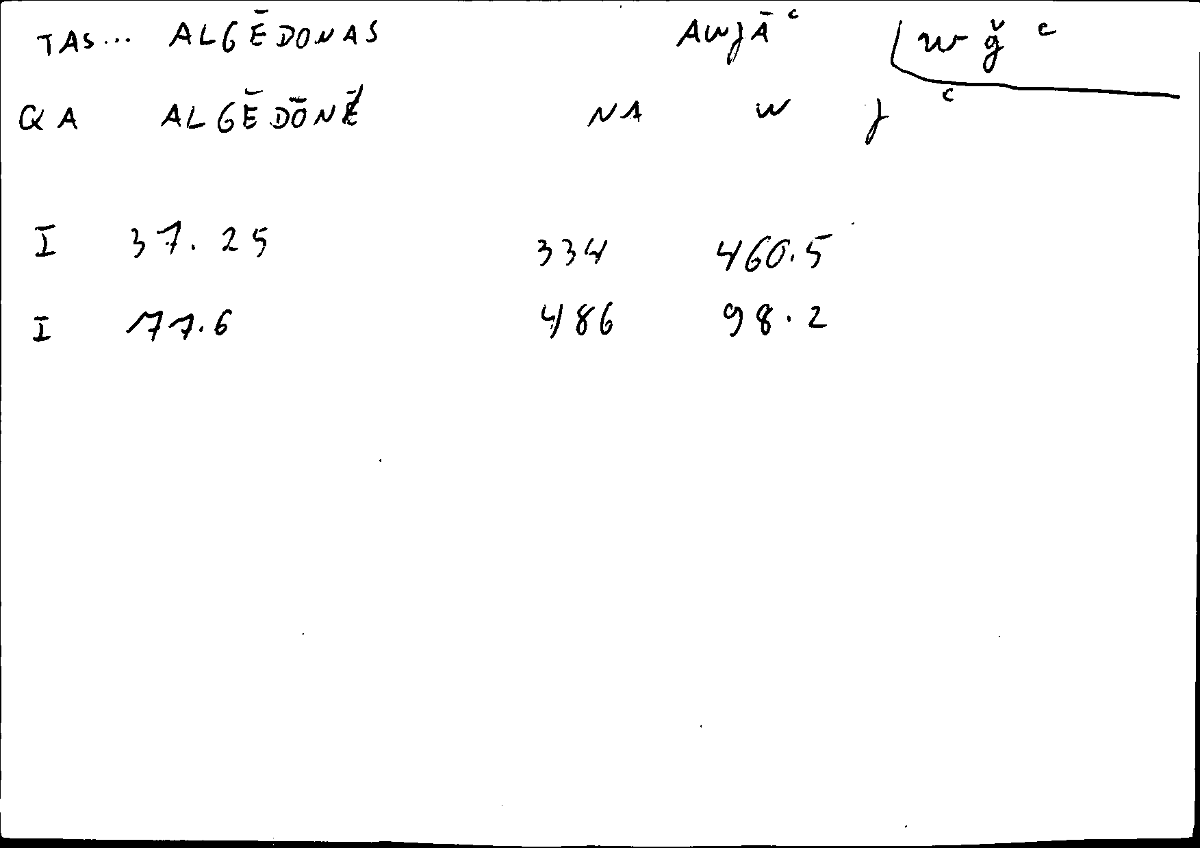 TAS... ALGĒDONAS AWJĀʿ w ǧ ʿ
QA ALGĒDŌNĒ NA W J ʿ
I 37.25 334 460.5
I 77.6 486 98.2